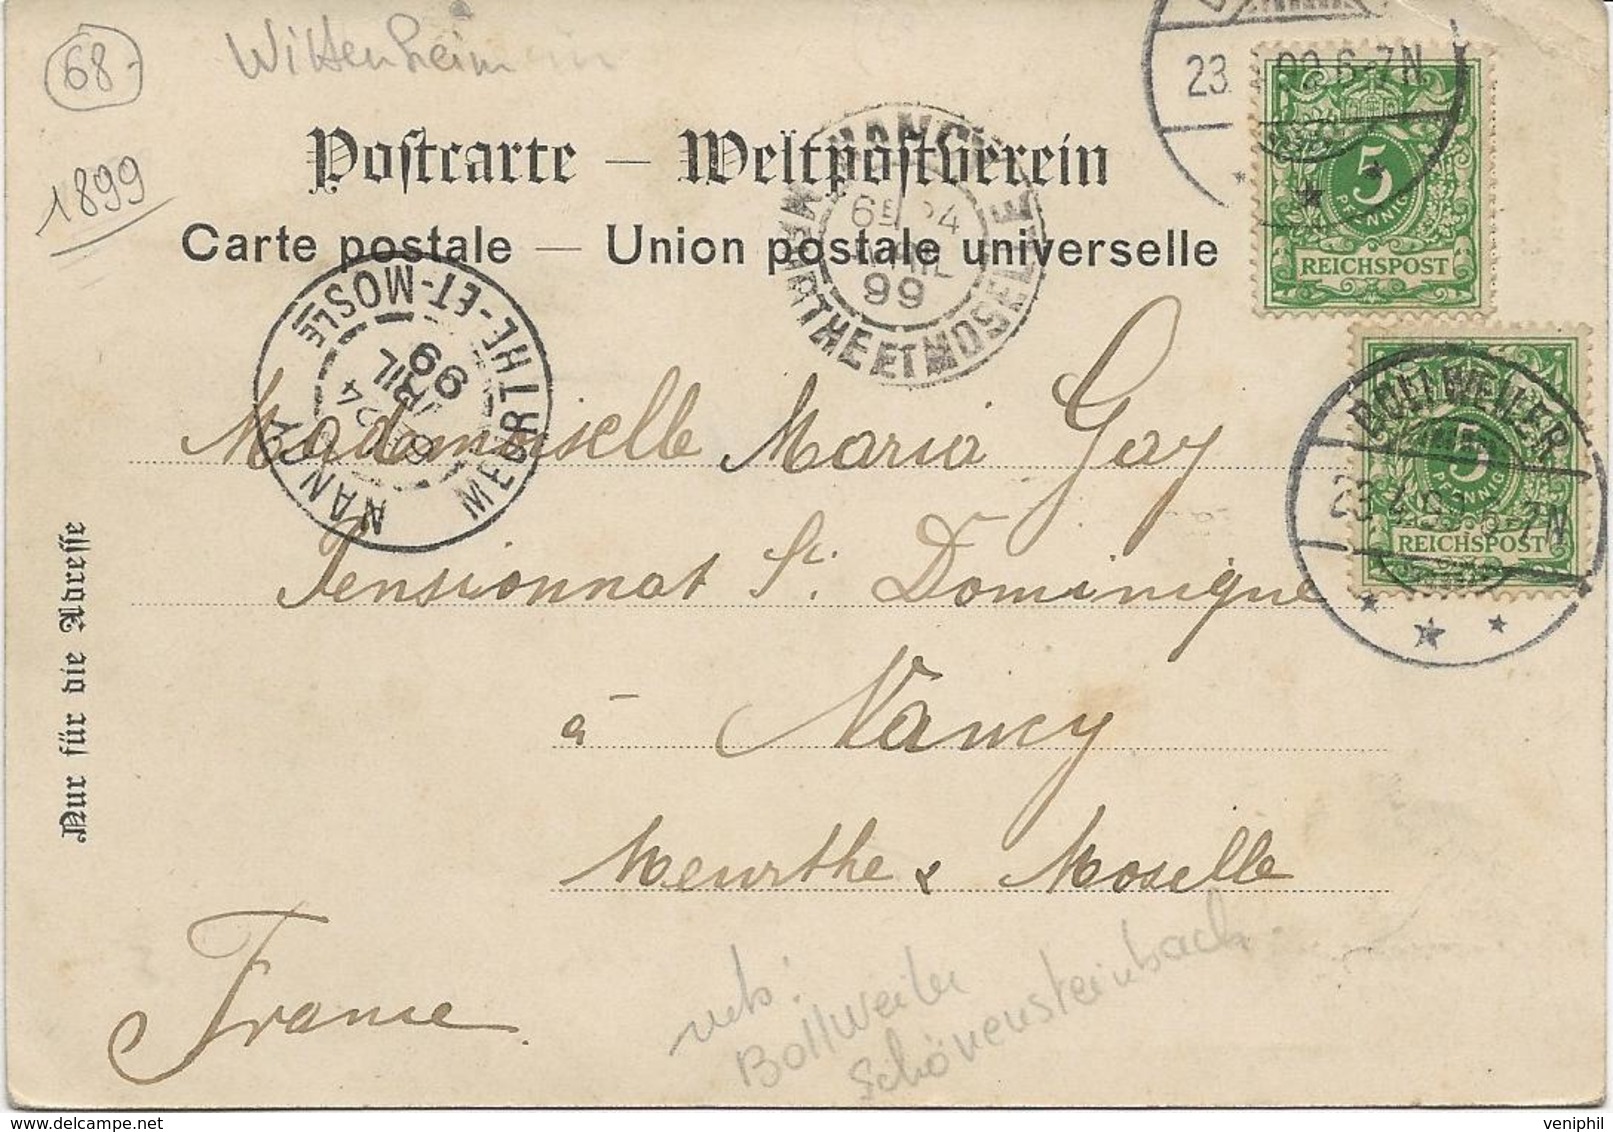 68
Wittenheim
1899
Postcarte — Weltpostverein
Carte postale — Union postale universelle
23 99 6-7N
5
PFENNIG
REICHSPOST
NANCY
6E 24
AVRIL
99
MEURTHE ET MOSELLE
NANCY
24
AVRIL
99
MEURTHE-ET-MOSLLE
BOLLWEILER
23 4 99 6-7N
5
PFENNIG
REICHSPOST
Mademoiselle Maria Gay
Pensionnat St. Dominique
à Nancy
Meurthe & Moselle
France
Nur für die Adresse
Bollweiler
Schönensteinbach
veniphil